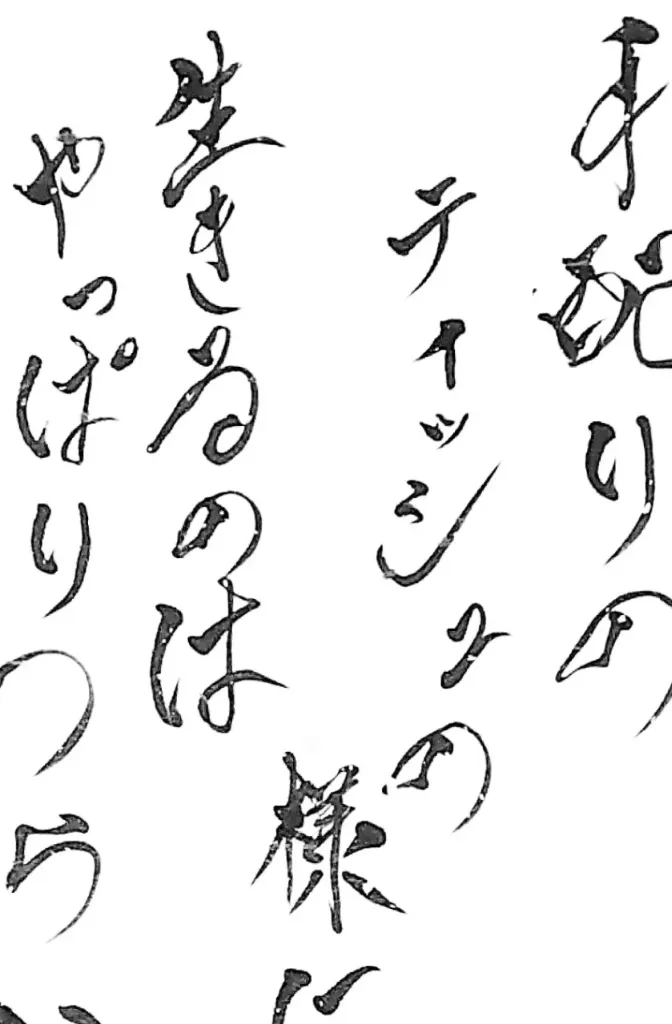 手配りの
ティッシュの
様に
生きるのは
やっぱりつらい